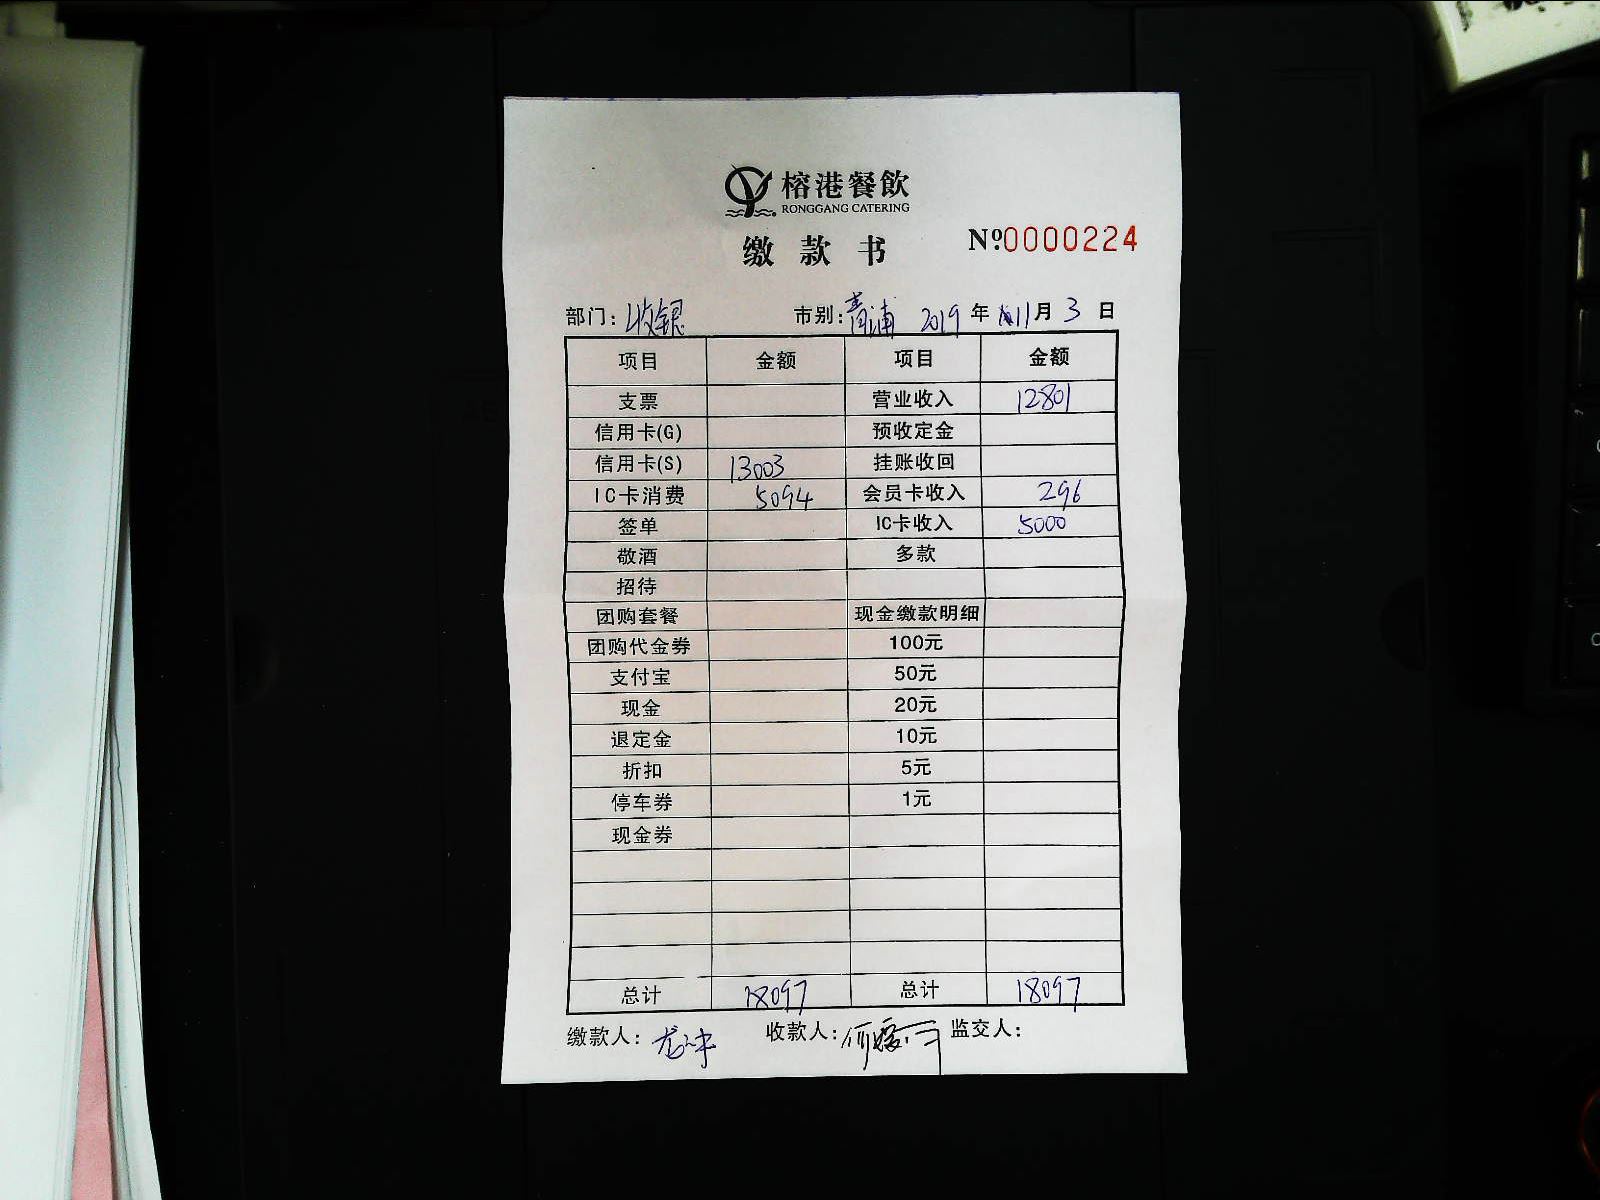 榕港餐飲
RONGGANG CATERING
缴款书 Nº0000224
部门: 收银 市别: 青浦 2019 年 11 月 3 日
项目 金额 项目 金额
支票 营业收入 12801
信用卡(G) 预收定金
信用卡(S) 13003 挂账收回
IC卡消费 5094 会员卡收入 296
签单 IC卡收入 5000
敬酒 多款
招待
团购套餐 现金缴款明细
团购代金券 100元
支付宝 50元
现金 20元
退定金 10元
折扣 5元
停车券 1元
现金券
总计 18097 总计 18097
缴款人: 收款人: 监交人: